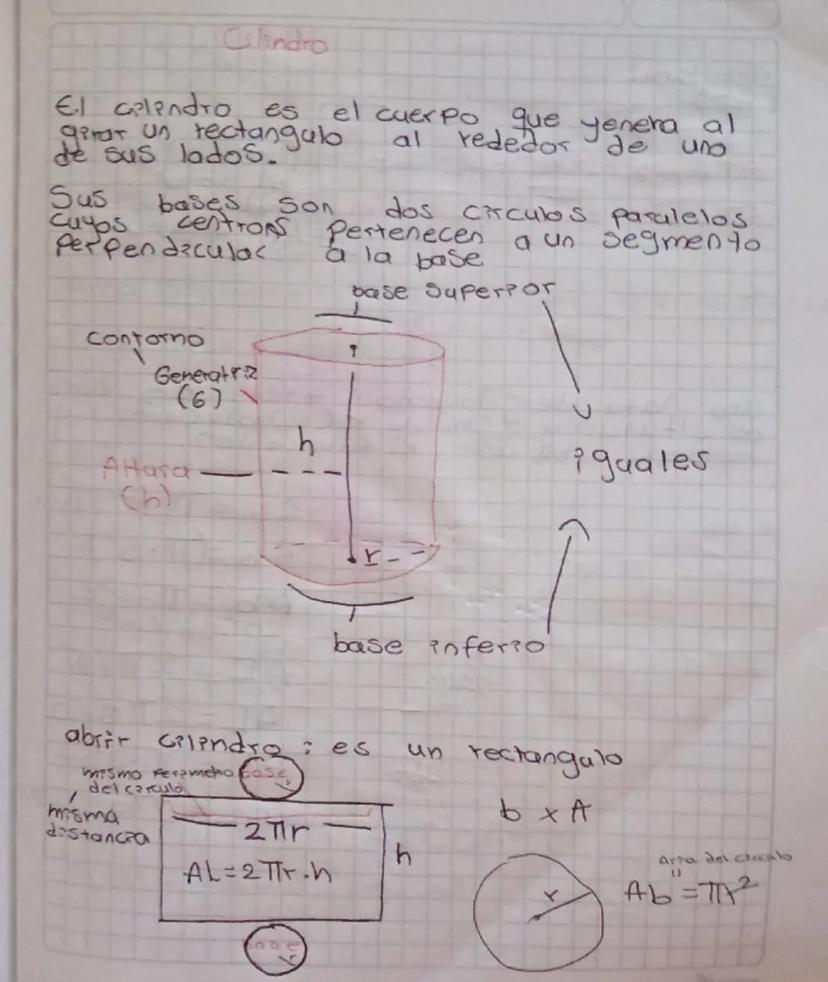 Cilindro
El cilindro es el cuerpo que yenera al
girar un rectangulo al rededor de uno
de sus lados.
Sus bases son dos circulos paralelos
cuyos centrons pertenecen a un segmento
perpendicular a la base
base superior
contorno
Generatriz
(G)
h
Altura
(h)
iguales
r
base inferio
abrir cilindro : es un rectangulo
mismo perimetro
del circulo
base
r
misma
distancia
2πr
AL = 2πr.h
h
b x A
r
Area del circulo
"
Ab = πr²
base
r